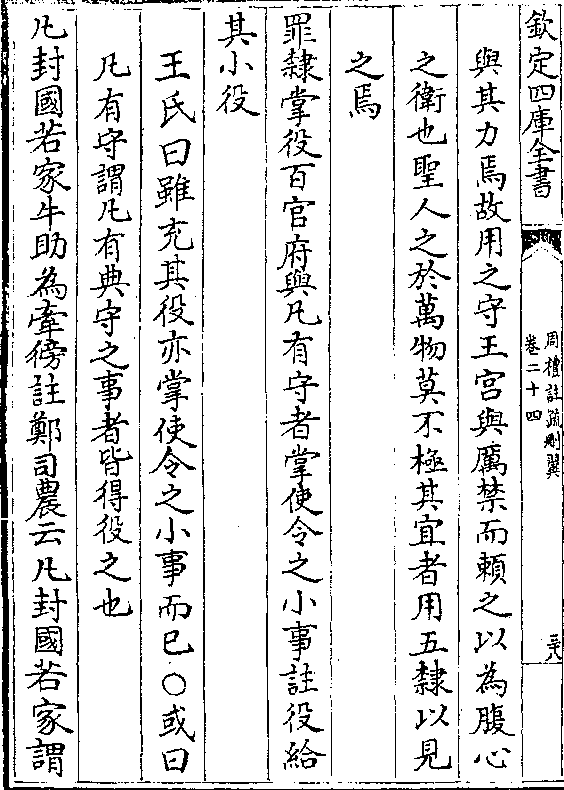 欽定四庫全書
周禮註疏刪翼
卷二十四
三六
與其力焉故用之守王宮與厲禁而賴之以為腹心
之衛也聖人之於萬物莫不極其宜者用五隸以見
之焉
罪隸掌役百官府與凡有守者掌使令之小事註役給
其小役
王氏曰雖充其役亦掌使令之小事而已○或曰
凡有守謂凡有典守之事者皆得役之也
凡封國若家牛助為牽徬註鄭司農云凡封國若家謂